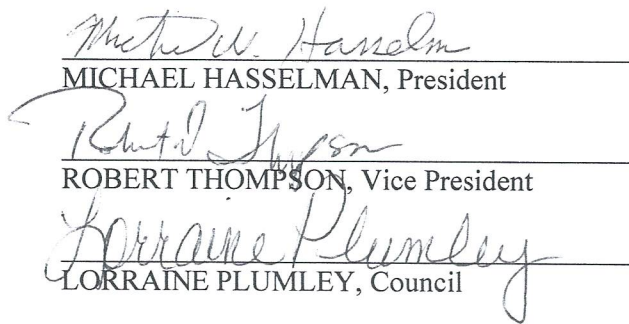 Michael W. Hasselm
MICHAEL HASSELMAN, President
Robert D Thompson
ROBERT THOMPSON, Vice President
Lorraine Plumley
LORRAINE PLUMLEY, Council